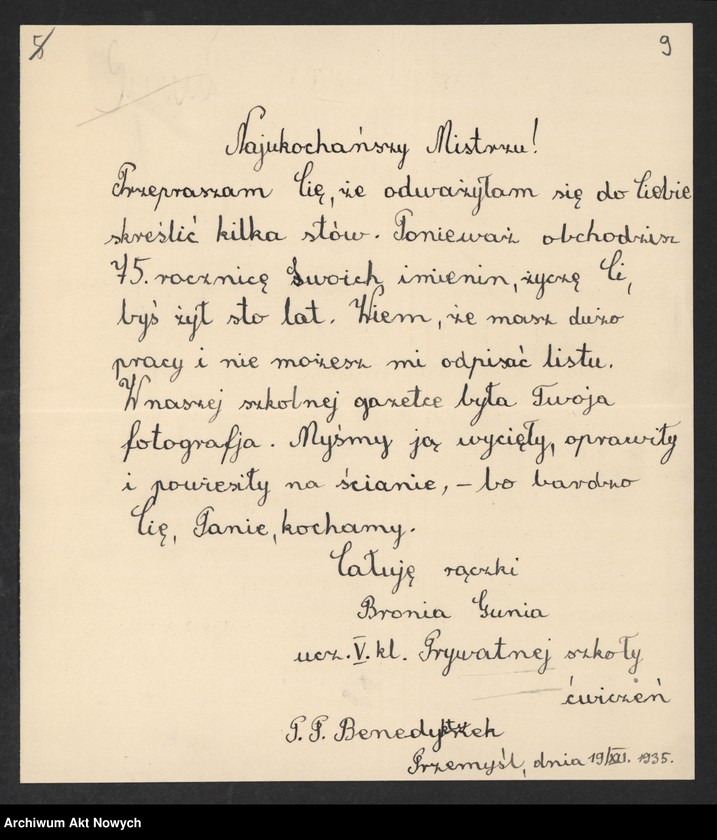 5
9
Najukochańszy Mistrzu!
Przepraszam Cię, że odważyłam się do Ciebie
skreślić kilka słów. Ponieważ obchodzisz
75. rocznicę Swoich imienin, życzę Ci,
byś żył sto lat. Wiem, że masz dużo
pracy i nie możesz mi odpisać listu.
W naszej szkolnej gazetce była Twoja
fotografja. Myśmy ją wycięły, oprawiły
i powiesiły na ścianie, – bo bardzo
Cię, Panie, kochamy.
Całuję rączki
Bronia Gunia
ucz. V. kl. Prywatnej szkoły
ćwiczeń
P. P. Benedyktynek
Przemyśl, dnia 19/XII. 1935.
Archiwum Akt Nowych